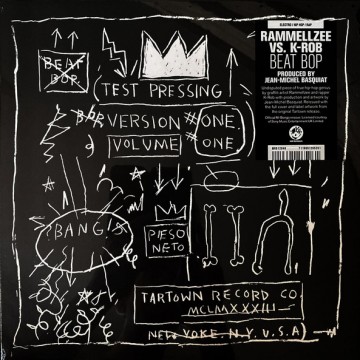 ELECTRO / HIP HOP / RAP
RAMMELLZEE
VS. K-ROB
BEAT BOP
PRODUCED BY
JEAN-MICHEL BASQUIAT
BEAT
BOP
TEST PRESSING
BOP VERSION #ONE
VOLUME #ONE
BANG!
PESO
NETO
TARTOWN RECORD CO.
MCLMXXXIII
NEW YOKE. N.Y. U.S.A